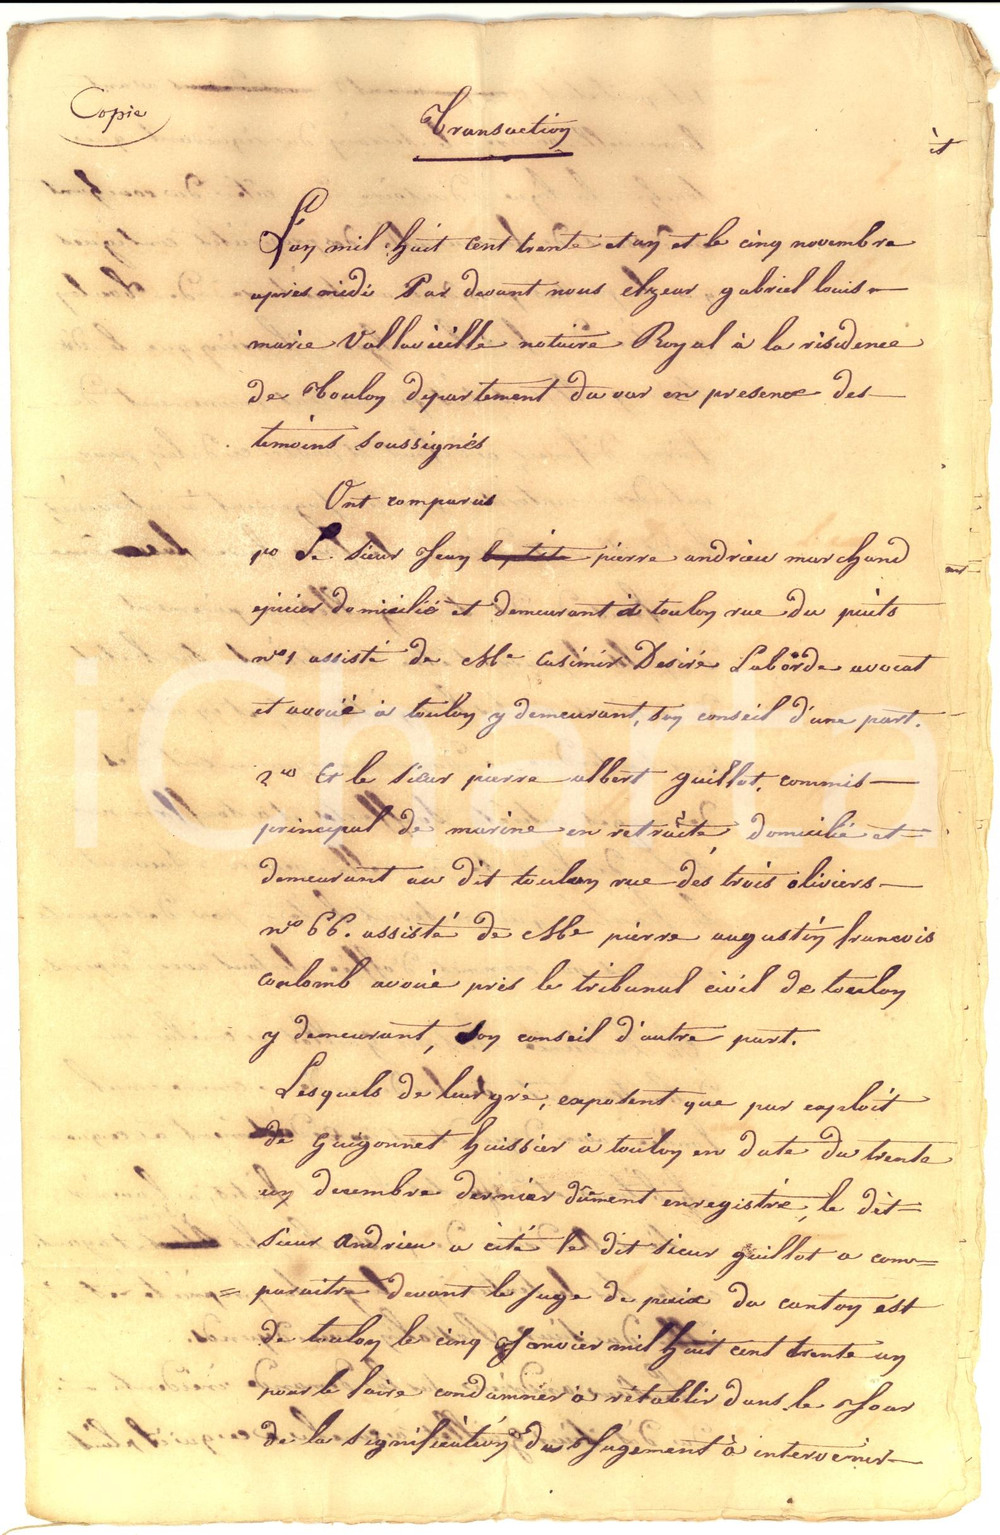 Copie
Transaction
L'an mil huit cent trente et un et le cinq novembre
apres midi Par devant nous elzear gabriel louis
marie Vallavieille notaire Royal à la residence
de Toulon departement du var en presence des
temoins soussignés
Ont comparus
1º Le sieur Jean baptiste pierre andrieu marchand
epicier domicilié et demeurant à toulon rue du puits
nº 1 assisté de Me Casimir Desiré Laborde avocat
et avoué à toulon y demeurant, son conseil d'une part.
2º Et le sieur pierre albert guillot, commis
principal de marine en retraite, domicilié et
demeurant au dit toulon rue des trois oliviers
nº 66. assisté de Me pierre augustin francois
Coulomb avoué près le tribunal civil de toulon
y demeurant, son conseil d'autre part.
Lesquels de leur gré, exposent que par exploit
de guigonnet huissier à toulon en date du trente
un decembre dernier dûment enregistré, le dit
sieur andrieu a cité le dit sieur guillot a com=
=paraitre devant le juge de paix du canton est
de toulon le cinq Janvier mil huit cent trente un
pour le faire condamner à rétablir dans le Jour
de la signification du Jugement à intervenir
Charta